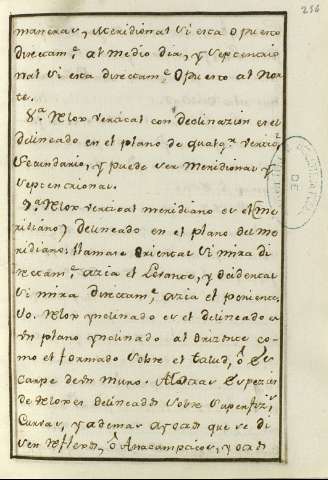 236
maneras, Meridional si esta opuesto
directam.e al medio dia, y Septentrio
nal si esta directam.e opuesto al Nor
te.
8.a Relox vertical con declinazion es el
delineado en el plano de qualq.r vertic.l
Secundario, y puede ser Meridional y
Septentrional.
9.a Relox vertical meridiano es el (me
ridiano) delineado en el plano del me
ridiano: llamase Oriental si mira di
rectam.e azia el Levante, y occidental
si mira directam.e azia el poniente.
10. Relox ynclinado es el delineado e
en plano ynclinado al Orizonte co
mo el formado sobre el talud, ô es
carpe de un muro. Ai otras espezies
de Reloxes delineados sobre superfizies
Curvas, y ademas otros que se di
sen Reflexos, ô Anacampticos, y otros
DE